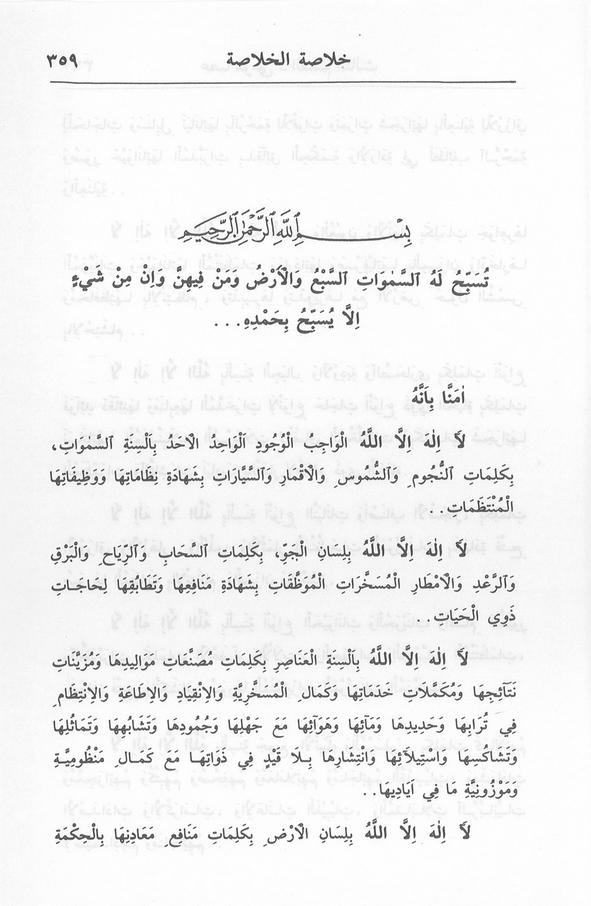 خلاصة الخلاصة ٣٥٩
بِسْمِ اللهِ الرَّحْمٰنِ الرَّحِيمِ
تُسَبِّحُ لَهُ ٱلسَّمٰوَاتِ ٱلسَّبْعُ وَالْأَرْضِ وَمَنْ فِيهِنَّ وَاِنْ مِنْ شَيْءٍ
اِلَّا يُسَبِّحُ بِحَمْدِهِ...
اٰمَنَّا بِاَنَّهُ
لَا اِلٰهَ اِلَّا اللّٰهُ الْوَاجِبُ الْوُجُودِ الْوَاحِدُ الْاَحَدُ بِاَلْسِنَةِ السَّمٰوَاتِ،
بِكَلِمَاتِ ٱلنُّجُومِ وَٱلشُّمُوسِ وَالْاَقْمَارِ وَٱلسَّيَّارَاتِ بِشَهَادَةِ نِظَامَاتِهَا وَوَظِيفَاتِهَا
الْمُنْتَظَمَاتِ..
لَا اِلٰهَ اِلَّا اللّٰهُ بِلِسَانِ الْجَوِّ، بِكَلِمَاتِ السَّحَابِ وَٱلرِّيَاحِ وَالْبَرْقِ
وَٱلرَّعْدِ وَالْاَمْطَارِ الْمُسَخَّرَاتِ الْمُوَظَّفَاتِ بِشَهَادَةِ مَنَافِعِهَا وَتَطَابُقِهَا لِحَاجَاتِ
ذَوِي الْحَيَاتِ..
لَا اِلٰهَ اِلَّا اللّٰهُ بِاَلْسِنَةِ الْعَنَاصِرِ بِكَلِمَاتِ مُصَنَّعَاتِ مَوَالِيدِهَا وَمُزَيَّنَاتِ
نَتَآئِجِهَا وَمُكَمَّلَاتِ خَدَمَاتِهَا وَكَمَالِ الْمُسَخَّرِيَّةِ وَالْاِنْقِيَادِ وَالْاِطَاعَةِ وَالْاِنْتِظَامِ
فِي تُرَابِهَا وَحَدِيدِهَا وَمَآئِهَا وَهَوَآئِهَا مَعَ جَهْلِهَا وَجُمُودِهَا وَتَشَابُهِهَا وَتَمَاثُلِهَا
وَتَشَاكُسِهَا وَاسْتِيلَآئِهَا وَانْتِشَارِهَا بِلَا قَيْدٍ فِي ذَوَاتِهَا مَعَ كَمَالِ مَنْظُومِيَّةِ
وَمَوْزُونِيَّةِ مَا فِي اَيَادِيهَا..
لَا اِلٰهَ اِلَّا اللّٰهُ بِلِسَانِ الْاَرْضِ بِكَلِمَاتِ مَنَافِعِ مَعَادِنِهَا بِالْحِكْمَةِ